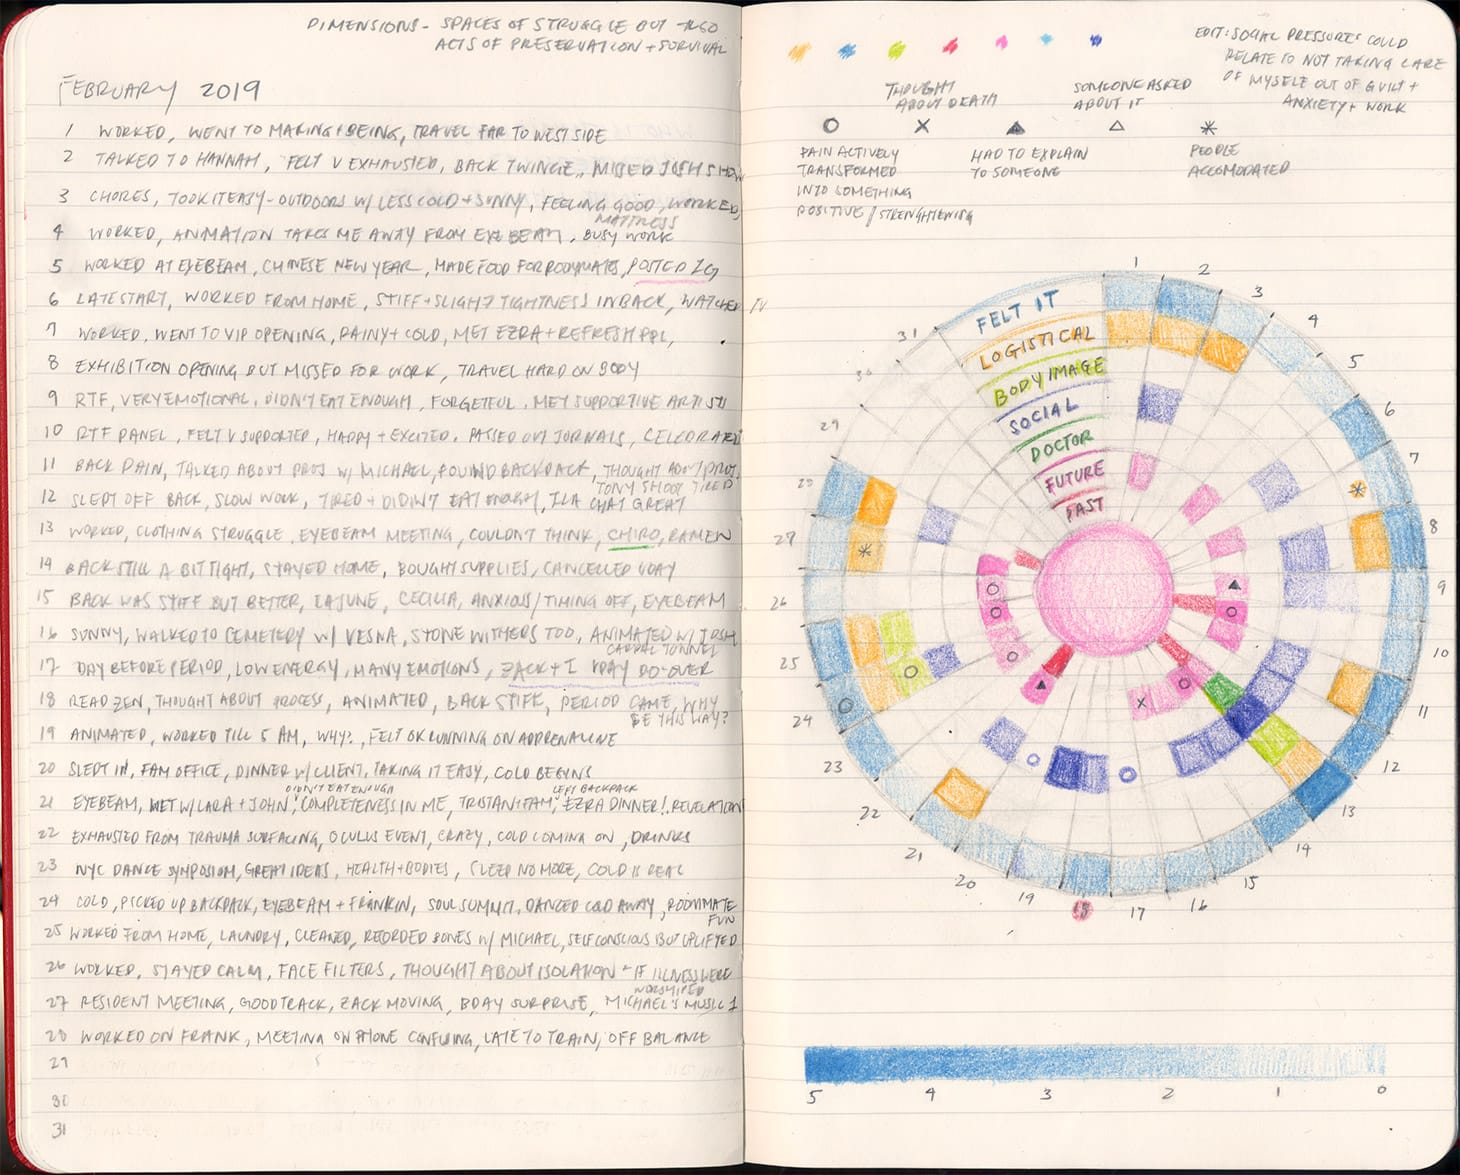 DIMENSIONS - SPACES OF STRUGGLE BUT ALSO
ACTS OF PRESERVATION + SURVIVAL
FEBRUARY 2019
1 WORKED, WENT TO MAKING + BEING, TRAVEL FAR TO WEST SIDE
2 TALKED TO HANNAH, FELT V EXHAUSTED, BACK TWINGE, MISSED JOSH SHOW
3 CHORES, TOOK IT EASY - OUTDOORS W/ LESS COLD + SUNNY, FEELING GOOD, WORKED,
MATTRESS
4 WORKED, ANIMATION TAKES ME AWAY FROM EYEBEAM, BUSY WORK
5 WORKED AT EYEBEAM, CHINESE NEW YEAR, MADE FOOD FOR ROOMMATES, POSTED IG
6 LATE START, WORKED FROM HOME, STIFF + SLIGHT TIGHTNESS IN BACK, WATCHED TV
7 WORKED, WENT TO VIP OPENING, RAINY + COLD, MET EZRA + REFRESH PPL,
8 EXHIBITION OPENING BUT MISSED FOR WORK, TRAVEL HARD ON BODY
9 RTF, VERY EMOTIONAL, DIDN'T EAT ENOUGH, FORGETFUL, MET SUPPORTIVE ARTISTS
10 RTF PANEL, FELT V SUPPORTED, HAPPY + EXCITED, PASSED OUT JORNALS, CELEBRATED
11 BACK PAIN, TALKED ABOUT PROJ W/ MICHAEL, FOUND BACKPACK, THOUGHT ABOUT PROJ,
TONY SHOOT TIRED
12 SLEPT OFF BACK, SLOW WORK, TIRED + DIDN'T EAT ENOUGH, ILA CHAT GREAT
13 WORKED, CLOTHING STRUGGLE, EYEBEAM MEETING, COULDN'T THINK, CHIRO, RAMEN
14 BACK STILL A BIT TIGHT, STAYED HOME, BOUGHT SUPPLIES, CANCELLED VDAY
15 BACK WAS STIFF BUT BETTER, LAJUNE, CECILIA, ANXIOUS/TIMING OFF, EYEBEAM
16 SUNNY, WALKED TO CEMETERY W/ VESNA, STONE WITHERS TOO, ANIMATED W/ JOSH
CARPAL TUNNEL
17 DAY BEFORE PERIOD, LOW ENERGY, MANY EMOTIONS, ZACK + I VDAY DO-OVER
18 READ ZEN, THOUGHT ABOUT PROCESS, ANIMATED, BACK STIFF, PERIOD CAME, WHY
BE THIS WAY?
19 ANIMATED, WORKED TILL 5 AM, WHY?, FELT OK RUNNING ON ADRENALINE
20 SLEPT IN, FAM OFFICE, DINNER W/ CLIENT, TAKING IT EASY, COLD BEGINS
DIDN'T EAT ENOUGH LEFT BACKPACK
21 EYEBEAM, MET W/ LARA + JOHN, "COMPLETENESS IN ME, TRISTAN + FAM," EZRA DINNER!, REVELATION
22 EXHAUSTED FROM TRAUMA SURFACING, OCULUS EVENT, CRAZY, COLD COMING ON, DRINKS
23 NYC DANCE SYMPOSIUM, GREAT IDEAS, HEALTH + BODIES, SLEEP NO MORE, COLD IS REAL
24 COLD, PICKED UP BACKPACK, EYEBEAM + FRANKIN, SOUL SUMMIT, DANCED COLD AWAY, ROOMMATE
FUN
25 WORKED FROM HOME, LAUNDRY, CLEANED, RECORDED BONES W/ MICHAEL, SELF CONSCIOUS BUT UPLIFTED
26 WORKED, STAYED CALM, FACE FILTERS, THOUGHT ABOUT ISOLATION - IF ILLNESS WERE
WORSHIPED
27 RESIDENT MEETING, GOOD TRACK, ZACK MOVING, BDAY SURPRISE, MICHAEL'S MUSIC 1
28 WORKED ON FRANK, MEETING ON PHONE CONFUSING, LATE TO TRAIN, OFF BALANCE
29
30
31
EDIT: SOCIAL PRESSURES COULD
RELATE TO NOT TAKING CARE
OF MYSELF OUT OF GUILT +
ANXIETY + WORK
THOUGHT
ABOUT DEATH
SOMEONE ASKED
ABOUT IT
PAIN ACTIVELY
TRANSFORMED
INTO SOMETHING
POSITIVE / STRENGHTENING
HAD TO EXPLAIN
TO SOMEONE
PEOPLE
ACCOMODATED
FELT IT
LOGISTICAL
BODY IMAGE
SOCIAL
DOCTOR
FUTURE
PAST
1
2
3
4
5
6
7
8
9
10
11
12
13
14
15
16
17
18
19
20
21
22
23
24
25
26
27
28
29
30
31
5 4 3 2 1 0